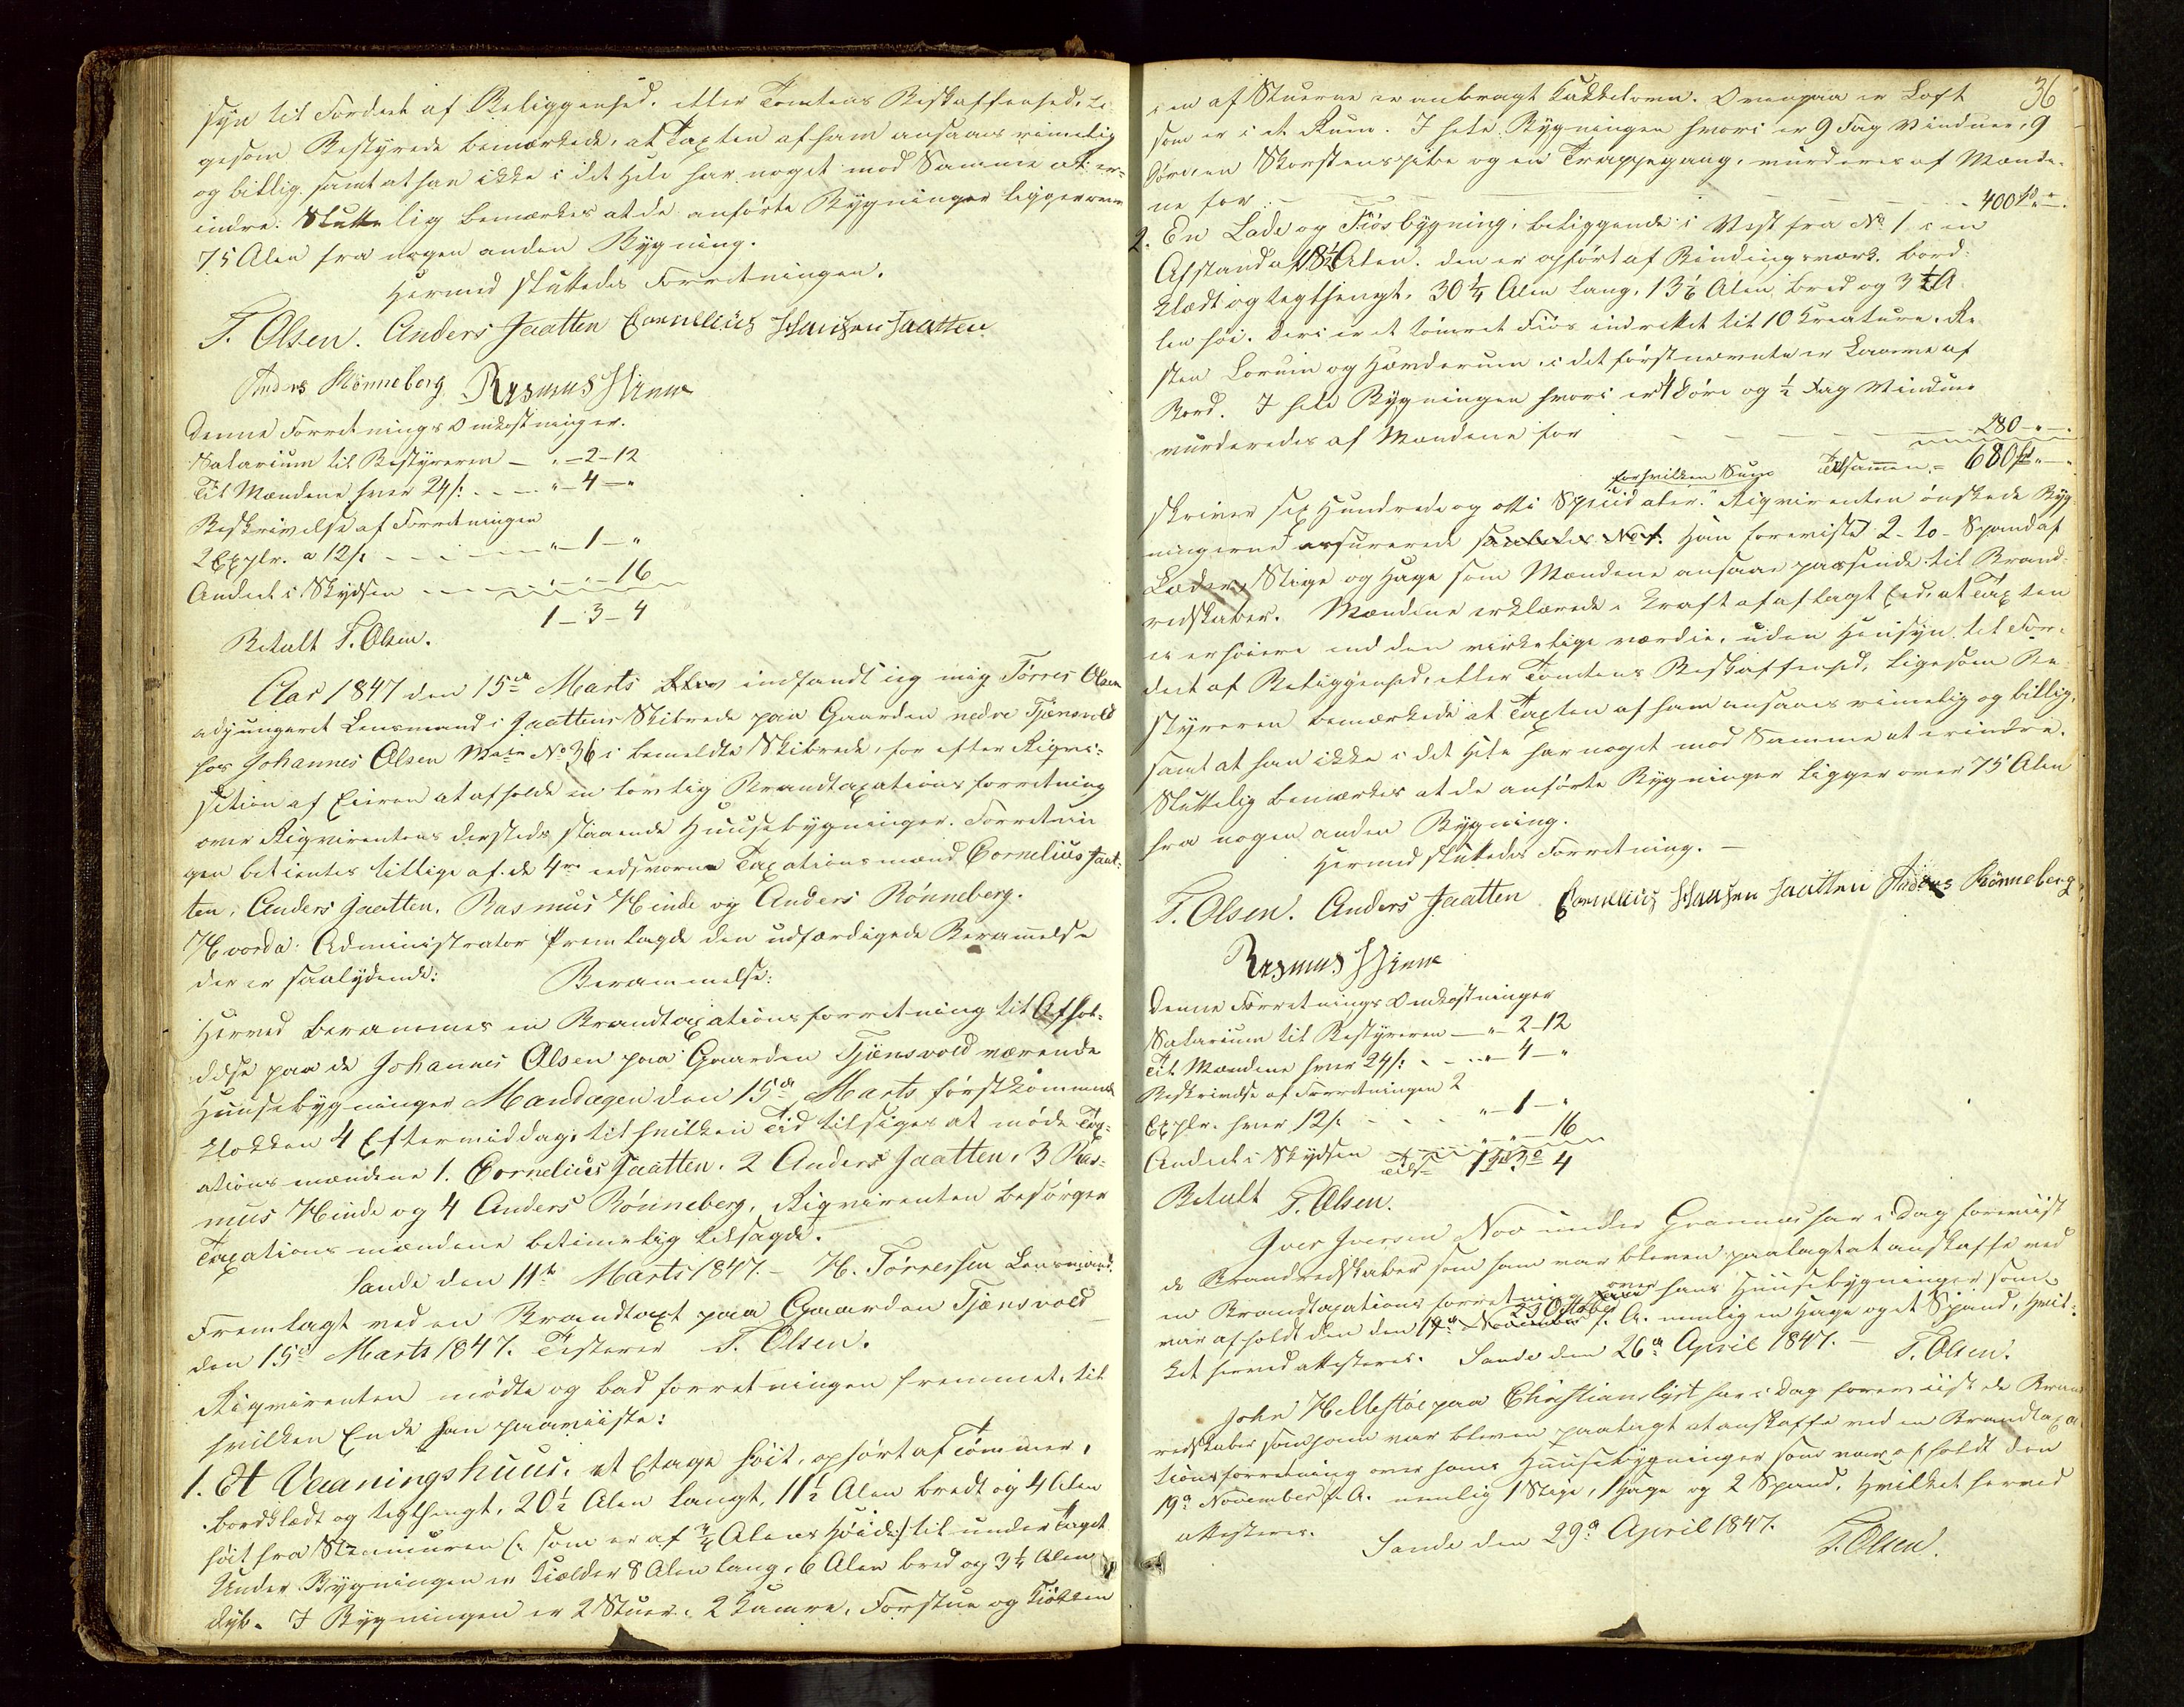 syn til Fordeel af Beliggenhed, eller Tomtens Beskaffenhed, li-
gesom Bestyrede bemærkede, at Taxten af ham ansaaes rimelig
og billig, samt at han ikke i det Hele har noget mod Samme at er-
indre. Sluttelig bemærkes at de anførte Bygninger ligger over
75 Alen fra nogen anden Bygning.
Hermed sluttedes Forretningen.
T. Olsen. Anders Jaatten Cornelius Hansen Jaatten
Anders Rønneberg Rasmus Hinne
Denne Forretnings Omkostninger.
Salarium til Bestyreren – „ – 2 – 12
Til Mændene hver 24 /: – – „ – 4 – „
Beskrivelse af Forretningen
2 Explr. a 12 /: – – „ – 1 – „
Andeel i Skydsen – – „ – „ – 16
1 – 3 – 4
Betalt T. Olsen.
Aar 1847 den 15de Marts indfandt jeg mig Tørres Olsen
adjungeret Lensmand i Jaattens Skibrede paa Gaarden nedre Tjensvold
hos Johannes Olsen Matr No 36 i bemeldte Skibrede, for efter Reqvi-
sition af Eieren at afholde en lovlig Brandtaxationsforretning
over Reqvirentens dersteds staaende Huusebygninger. Forretnin
gen betientes tillige af de 4re eedsvorne Taxationsmænd Cornelius Jaat-
ten, Anders Jaatten, Rasmus Hinde og Anders Rønneberg.
Hvorda: Administrator fremlagde den udfærdigede Beramelse
der er saalydende: Berammelse:
Herved berammes en Brandtaxationsforretning til Afhol-
delse paa de Johannes Olsen paa Gaarden Tjensvold værende
Huusebygninger Mandagen den 15de Marts førstkommende
Klokken 4 Eftermiddag, til hvilken Tid tilsiges at møde Tax-
ationsmændene 1. Cornelius Jaatten, 2 Anders Jaatten, 3 Ras-
mus Hinde og 4 Anders Rønneberg. Reqvirenten besørger
Taxationsmændene betimelig tilsagde.
Sande den 11te Marts 1847. – H. Tørressen Lensmand.
Fremlagt ved en Brandtaxt paa Gaarden Tjensvold
den 15de Marts 1847. Testerer T. Olsen.
Reqvirenten mødte og bad forretningen fremmet, til
hvilken Ende han paaviiste:
1. Et Vaaningshuus, et Etage høit, opført af Tømmer,
bordklædt og teglhengt, 20½ Alen langt, 11½ Alen bredt og 4 Alen
høit fra Steenmuren (: som er af ¾ Alens Høide :) til under Taget
Under Bygningen er Kielder 8 Alen lang, 6 Alen bred og 3¼ Alen
dyb. I Bygningen er 2 Stuer, 2 Kamre, Forstue og Kiøkken
36
i en af Stuerne er anbragt Kakkelovn. Ovenpaa er Loft
som er i et Rum. I hele Bygningen hvori er 9 Fag Vinduer, 9
Døre, en Skorsteenspibe og en Trappegang, vurderes af Mænde-
ne for – – – 400 Sp „ – „
2. En Lade og Fiøsbygning, beliggende i Vest fra No 1 i en
Afstand af 18½ Alen. den er opført af Bindingsværk, bord-
klædt og teglhengt, 30¼ Alen lang, 13⅙ Alen bred og 3¼ A-
len høi. deri er et tømret Fiøs indrettet til 10 Kreature. Re
sten Lorum og Høvderum, i det førstnævnte er Laave af
Bord. I hele Bygningen hvori er 4 Døre og ½ Fag Vinduer
vurderedes af Mændene for – – – 280 – „ – „
for hvilken Sum Tilsammen = 680 Sp „ – „
skriver sex Hundrede og otti Speciedaler. Reqvirenten ønskede Byg-
ningerne assurerede. Han foreviste 2 – to – Spand af
Læder, Stige og Hage som Mændene ansaae passende til Brand-
redskaber. Mændene erklærede i Kraft af aflagt Eed, at Taxten
ei er høiere end den virkelige værdie, uden Hensyn til For-
deel af Beliggenhed, eller Tomtens Beskaffenhed, ligesom Be-
styreren bemærkede at Taxten af ham ansaaes rimelig og billig,
samt at han ikke i det Hele har noget mod Samme at erindre.
Sluttelig bemærkes at de anførte Bygninger ligger over 75 Alen
fra nogen anden Bygning.
Hermed sluttedes Forretning. –
T. Olsen. Anders Jaatten Cornelius Hansen Jaatten Anders Rønneberg
Rasmus Hinne
Denne Forretnings Omkostninger
Salarium til Bestyreren – „ – 2 – 12
Til Mændene hver 24 /: – – „ – 4 – „
Beskrivelse af Forretningen 2
Explr. hver 12 /: – – „ – 1 – „
Andeel i Skydsen – „ – „ – 16
Tils 1 – 3 – 4
Betalt T. Olsen.
Iver Iversen Noe under Grannæs har i Dag foreviist
de Brandredskaber som ham var bleven paalagt at anskaffe ved
en Brandtaxationsforretning over hans Huusebygninger som
var afholdt den 23 October f. A. nemlig en Hage og et Spand, hvil-
ket herved attesteres. Sande den 26de April 1847. – T. Olsen.
John Hellestøe paa Christianslyst har i Dag foreviist de Brand
redskaber som ham var bleven paalagt at anskaffe ved en Brandtaxa
tionsforretning over hans Huusebygninger som var afholdt den
19de November f. A. nemlig 1 Stige, 1 Hage og 2 Spand, hvilket herved
attesteres. Sande den 29de April 1847.
T. Olsen.